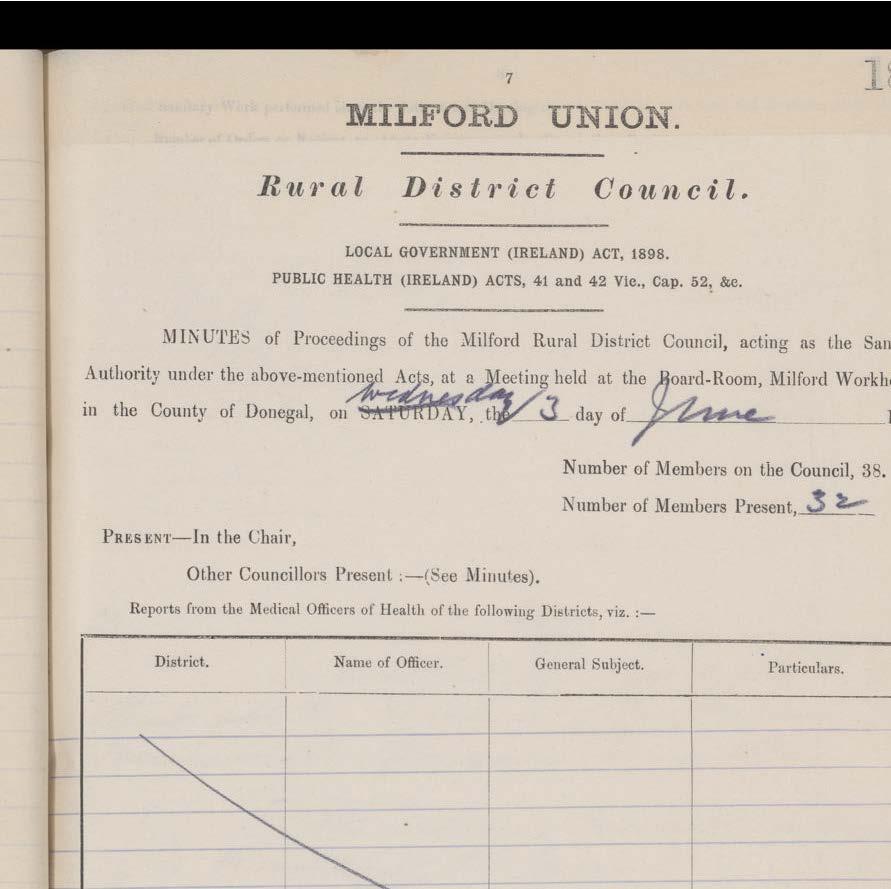 7
18
MILFORD UNION.
Rural District Council.
LOCAL GOVERNMENT (IRELAND) ACT, 1898.
PUBLIC HEALTH (IRELAND) ACTS, 41 and 42 Vic., Cap. 52, &c.
MINUTES of Proceedings of the Milford Rural District Council, acting as the San
Authority under the above-mentioned Acts, at a Meeting held at the Board-Room, Milford Workh
Wednesday
in the County of Donegal, on SATURDAY, the 3 day of June
Number of Members on the Council, 38.
Number of Members Present, 32
PRESENT—In the Chair,
Other Councillors Present :—(See Minutes).
Reports from the Medical Officers of Health of the following Districts, viz. :—
District. Name of Officer. General Subject. Particulars.